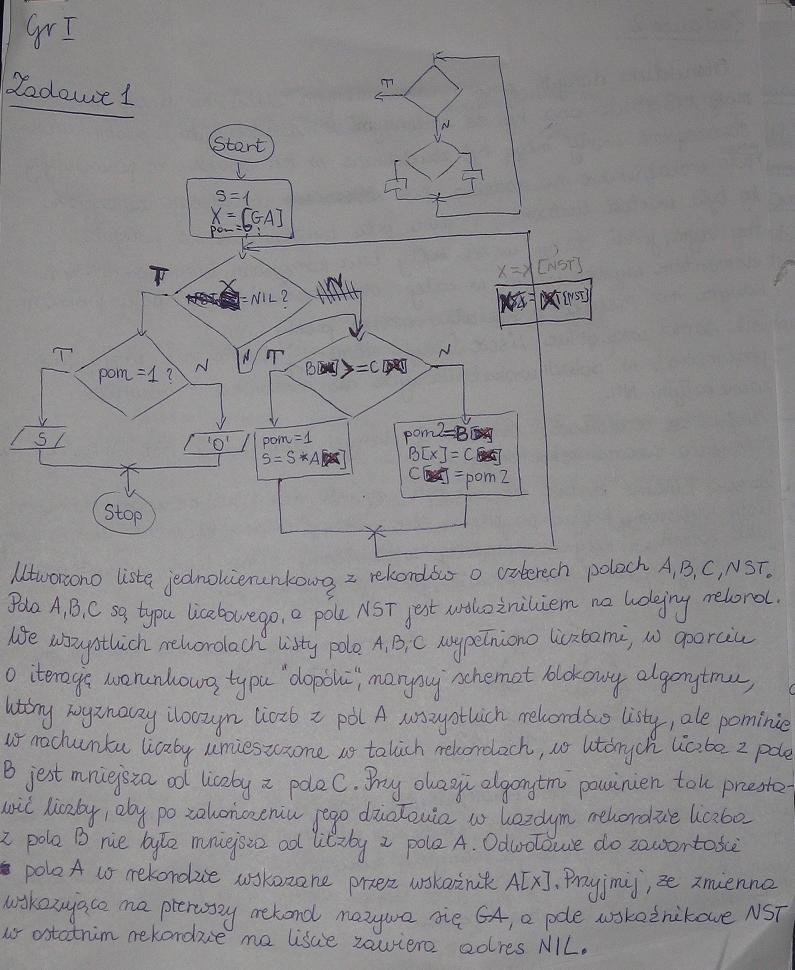 Gr I
Zadanie 1
T
N
Start
S=1
X = [GA]
pom=0
X = X [NST]
T
X = NIL?
N
[NST]
T
pom = 1 ?
N
T
B[x] >= C[x]
N
S
'0'
pom=1
S=S*A[x]
pom2=B[x]
B[x] = C[x]
C[x] = pom2
Stop
Utworzono listę jednokierunkową z rekordów o czterech polach A, B, C, NST.
Pola A, B, C są typu liczbowego, a pole NST jest wskaźnikiem na kolejny rekord.
We wszystkich rekordach listy pola A, B, C wypełniono liczbami, w oparciu
o iterację warunkową typu "dopóki", narysuj schemat blokowy algorytmu,
który wyznaczy iloczyn liczb z pól A wszystkich rekordów listy, ale pominie
w rachunku liczby umieszczone w takich rekordach, w których liczba z pola
B jest mniejsza od liczby z pola C. Przy okazji algorytm powinien tak przesta-
wić liczby, aby po zakończeniu jego działania w każdym rekordzie liczba
z pola B nie była mniejsza od liczby z pola A. Odwołanie do zawartości
pola A w rekordzie wskazane przez wskaźnik A[X]. Przyjmij, że zmienna
wskazująca na pierwszy rekord nazywa się GA, a pole wskaźnikowe NST
w ostatnim rekordzie na liście zawiera adres NIL.